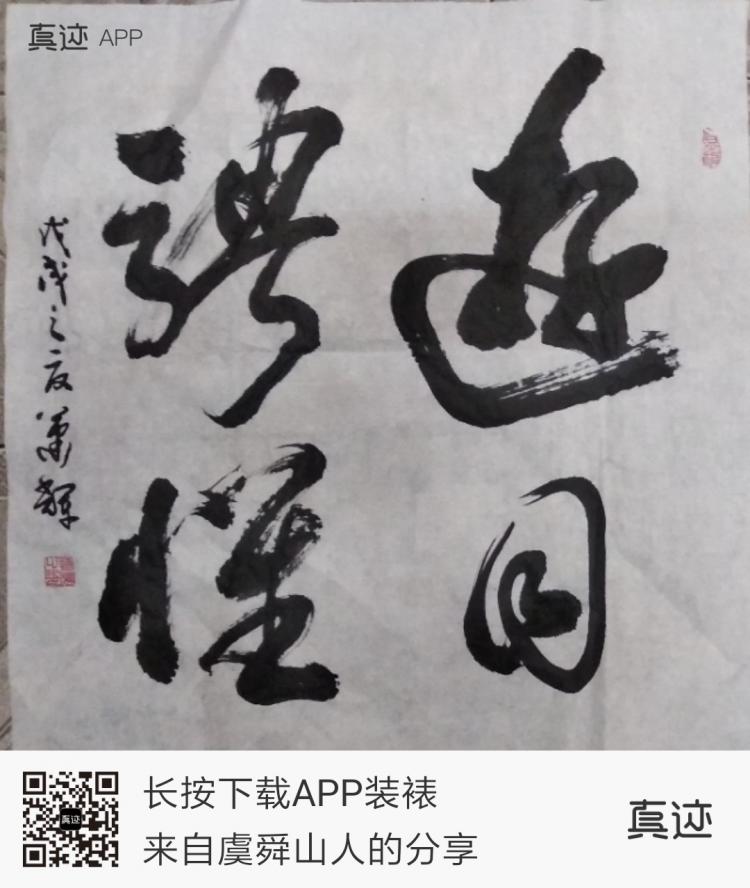 真迹 APP
遊目
騁懷
戊戌之夏
长按下载APP装裱
来自虞舜山人的分享
真迹
真迹